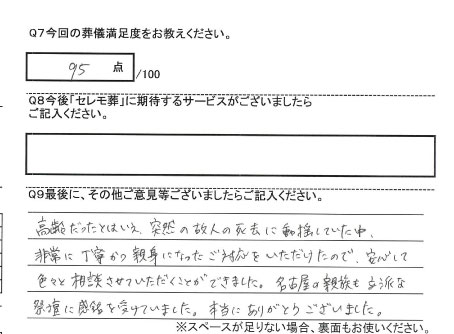 Q7今回の葬儀満足度をお教えください。
95 点 /100
Q8今後「セレモ葬」に期待するサービスがございましたら
ご記入ください。
Q9最後に、その他ご意見等ございましたらご記入ください。
高齢だったとはいえ、突然の故人の死去に動揺していた中、
非常に丁寧かつ親身になったご対応をいただけたので、安心して
色々と相談させていただくことができました。名古屋の親族も立派な
祭壇に感銘を受けていました。本当にありがとうございました。
※スペースが足りない場合、裏面もお使いください。